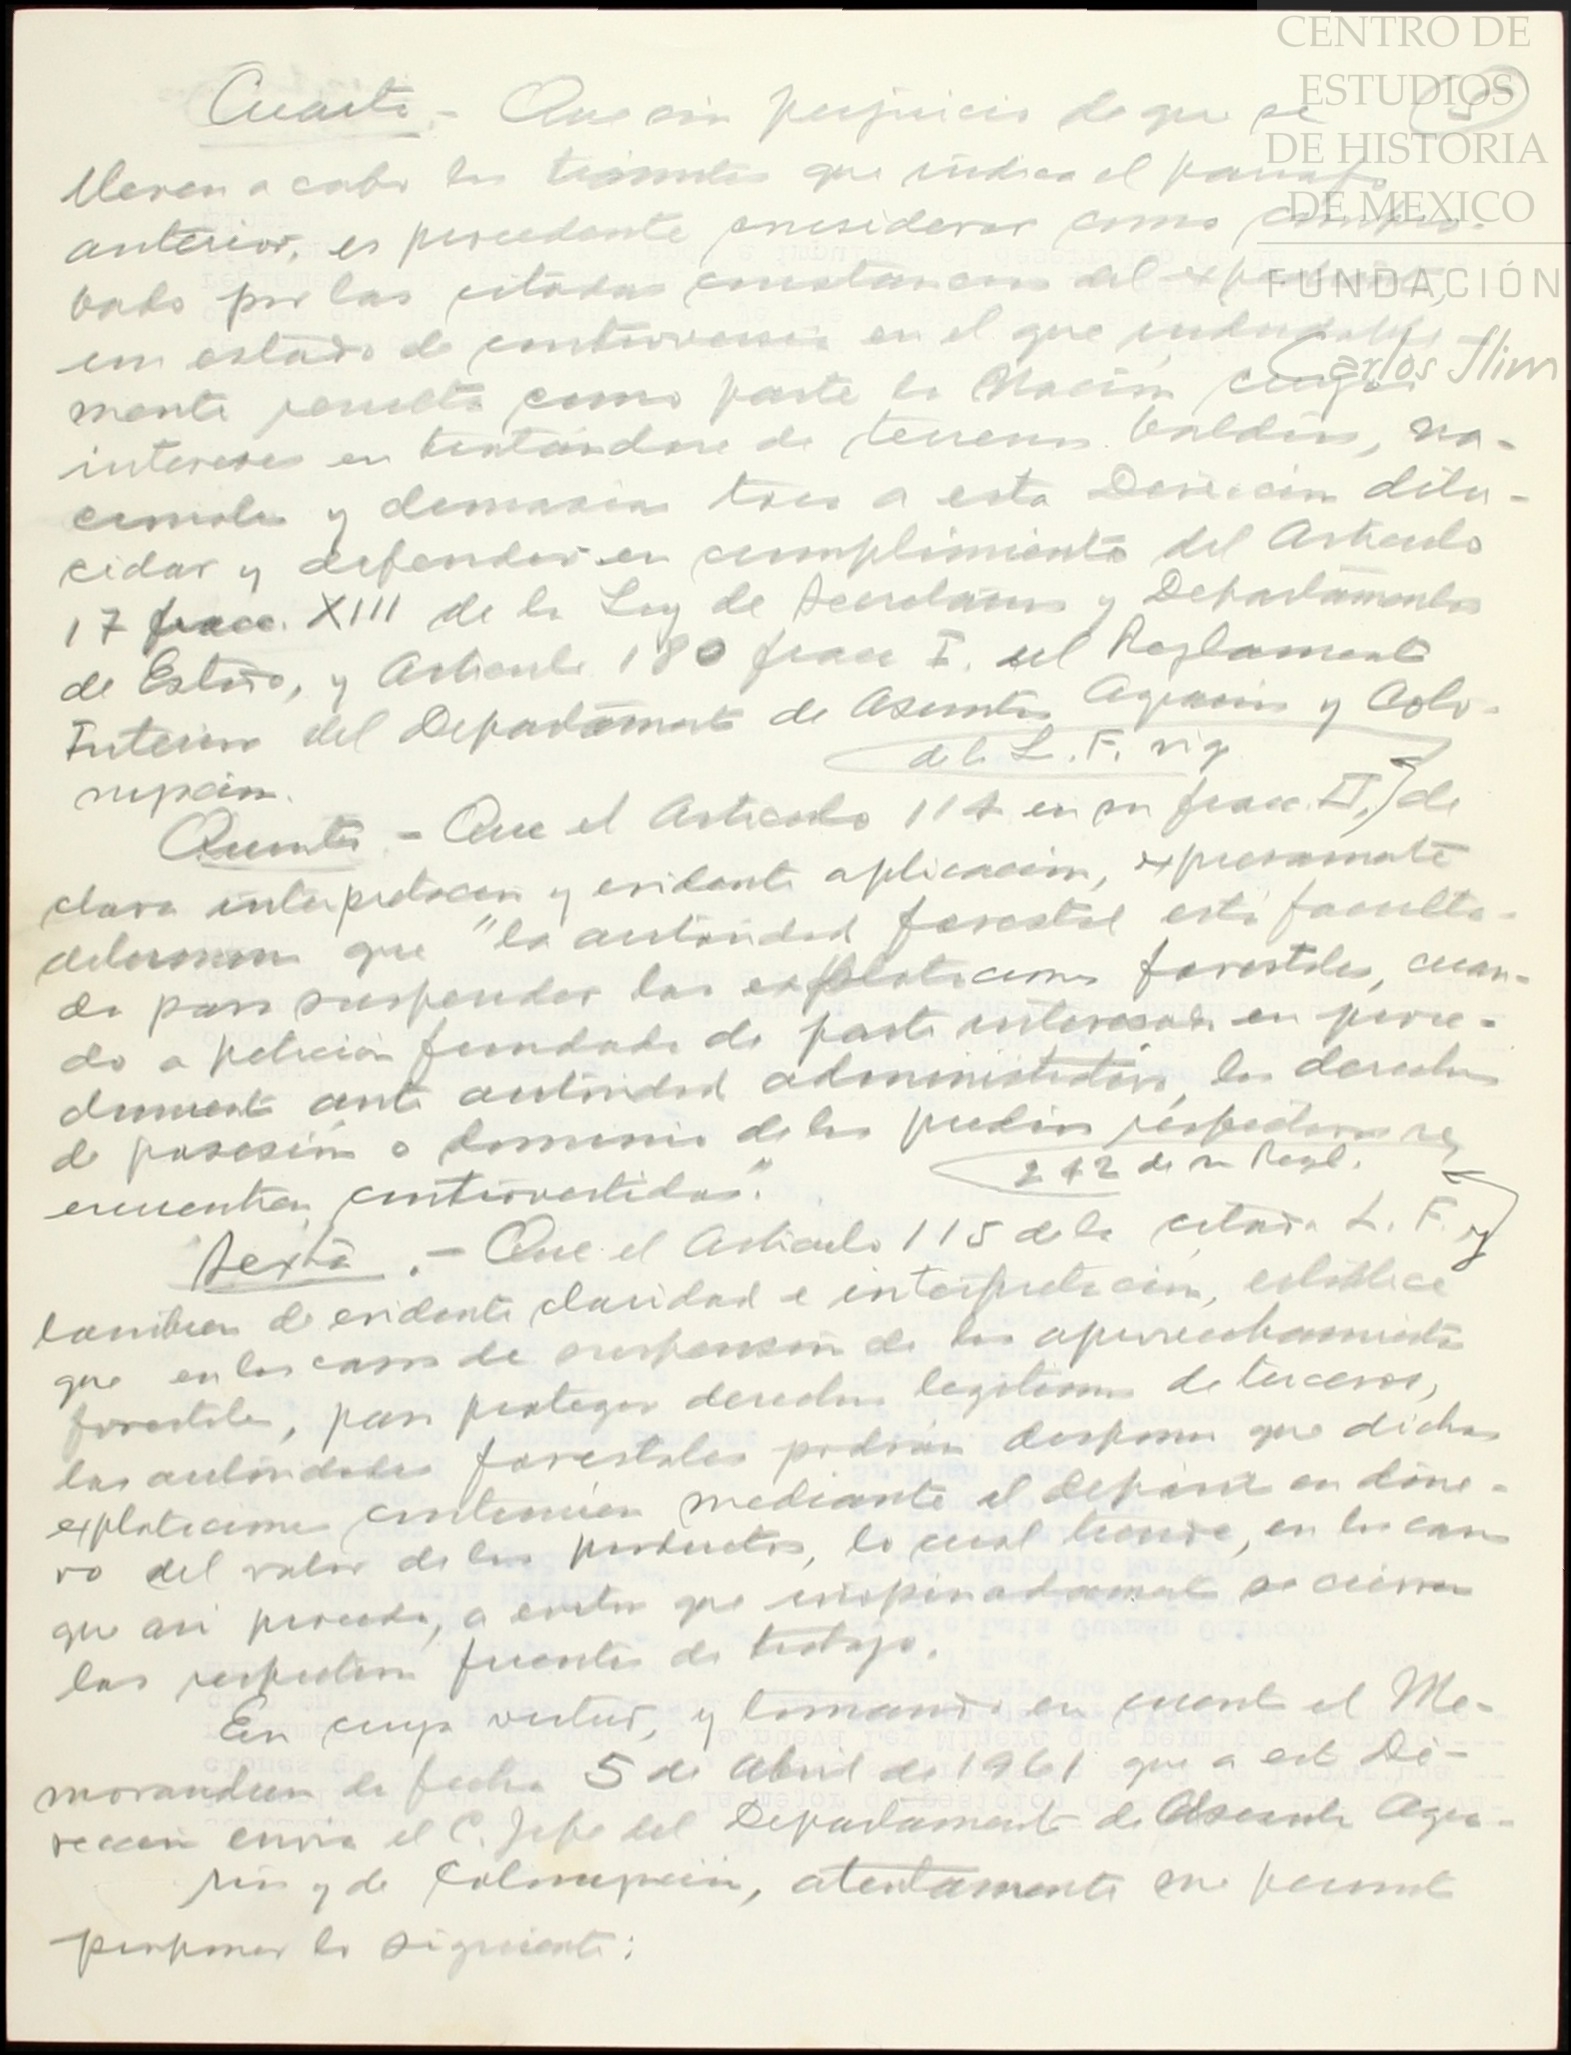 CENTRO DE
ESTUDIOS
DE HISTORIA
DE MEXICO
FUNDACIÓN
Carlos Slim
Cuarto.- Que sin perjuicio de que se
lleven a cabo los trámites que indica el párrafo
anterior, es procedente considerar como compro-
bado por las citadas constancias del expediente,
un estado de controversia en el que indudable
mente resulta como parte la Nación cuyos
intereses en tratándose de terrenos baldíos, na-
cionales y demasías toca a esta Dirección dilu-
cidar y defender en cumplimiento del Artículo
17 fracc. XIII de la Ley de Secretarías y Departamentos
de Estado, y Artículo 180 fracc I. del Reglamento
Interior del Departamento de Asuntos Agrarios y Colo-
nización.
de la L. F. vig
Quinto.- Que el Artículo 114 en su fracc. II, de
clara interpretación y evidente aplicación, expresamente
determina que "la autoridad forestal está faculta-
da para suspender las explotaciones forestales, cuan-
do a petición fundada de parte interesada en proce-
dimiento ante autoridad administrativa, los derechos
de posesión o dominio de los predios respectivos se
encuentren controvertidos".
242 de su Regl.
Sexto.- Que el Artículo 115 de la citada L. F. y
también de evidente claridad e interpretación, establece
que en los casos de suspensión de los aprovechamientos
forestales, para proteger derechos legítimos de terceros,
las autoridades forestales podrán disponer que dichas
explotaciones continúen mediante el depósito en dine-
ro del valor de los productos, lo cual tiende, en los casos
que así proceda, a evitar que inopinadamente se cierren
las respectivas fuentes de trabajo.
En cuya virtud, y tomando en cuenta el Me-
morandum de fecha 5 de Abril de 1961 que a esta Di-
rección envía el C. Jefe del Departamento de Asuntos Agra-
rios y de Colonización, atentamente me permito
proponer lo siguiente: